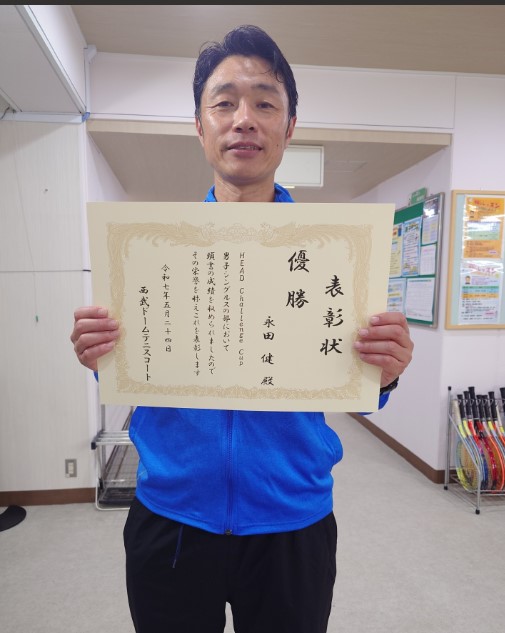 表彰状
優勝
永田 健 殿
HEAD Challenge Cup
男子シングルスの部において
頭書の成績を収められましたので
その栄誉を称えこれを表彰します
令和七年五月二十四日
西武ドームテニスコート